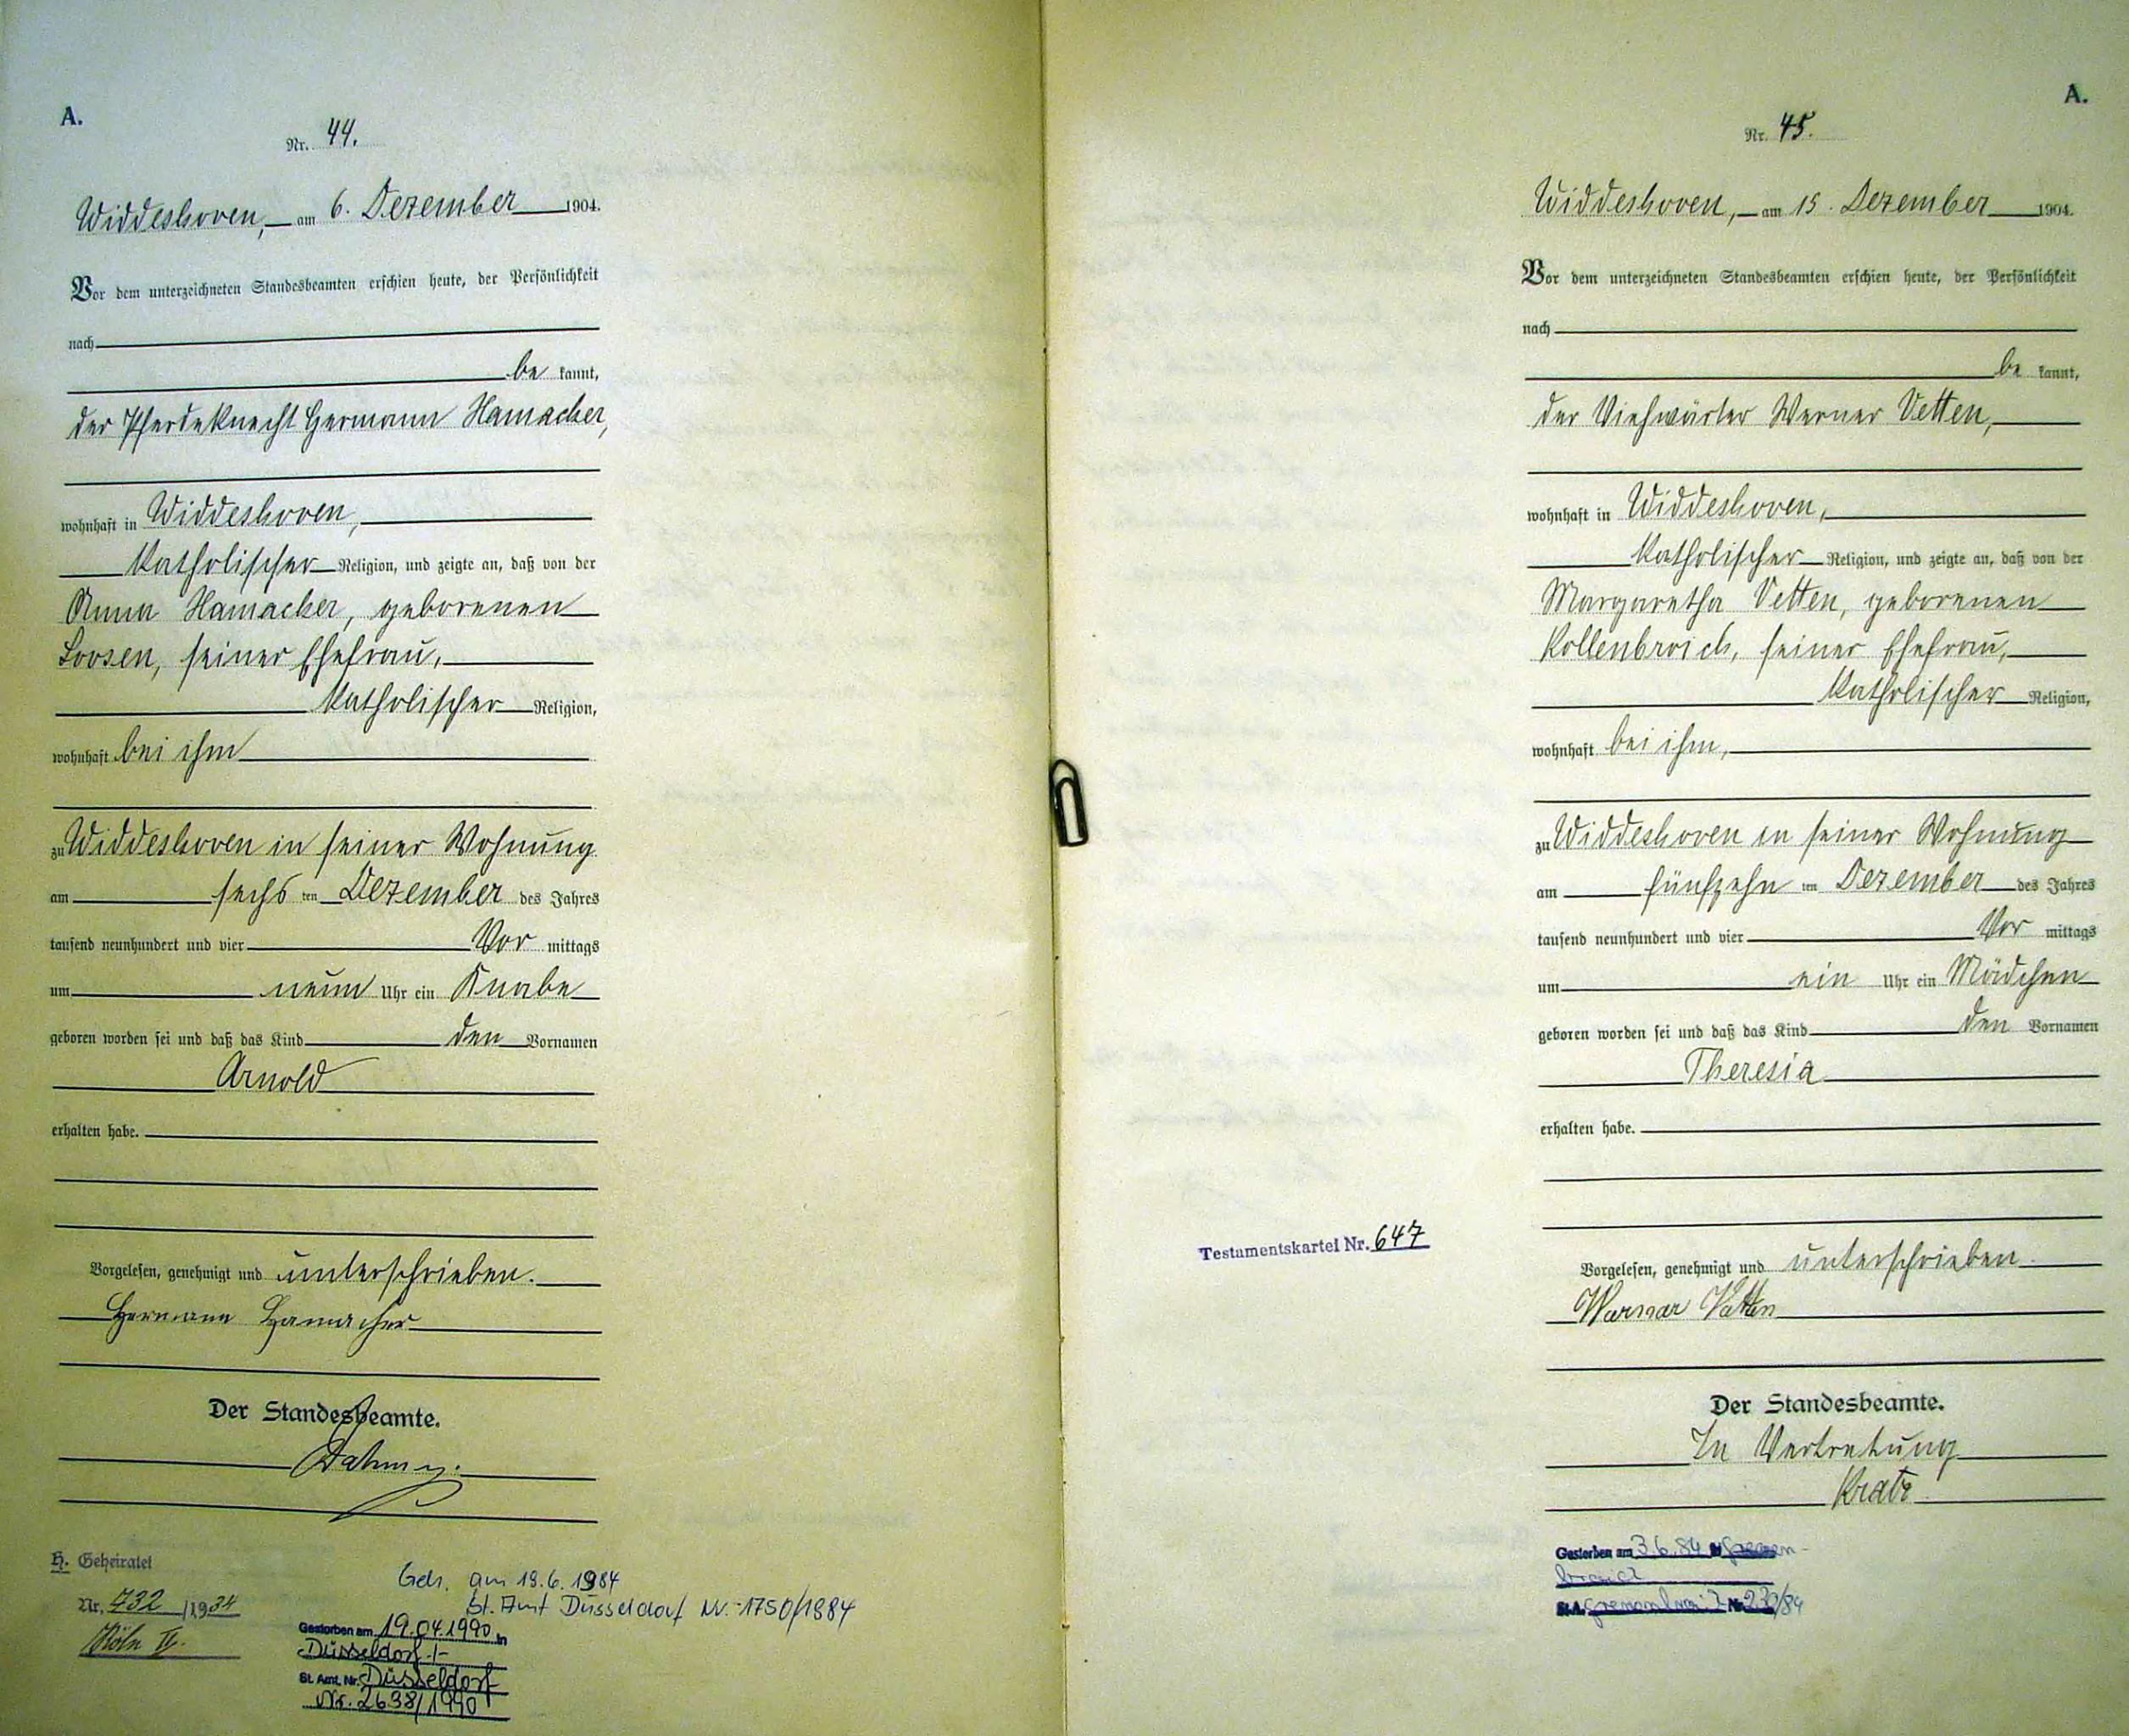 A.
Nr. 44.
Widdeshoven, am 6. Dezember 1904.
Vor dem unterzeichneten Standesbeamten erschien heute, der Persönlichkeit
nach
be kannt,
der Pferdeknecht Hermann Hamacher,
wohnhaft in Widdeshoven,
katholischer Religion, und zeigte an, daß von der
Anna Hamacher, geborenen
Loosen, seiner Ehefrau,
katholischer Religion,
wohnhaft bei ihm
zu Widdeshoven in seiner Wohnung
am sechs ten Dezember des Jahres
tausend neunhundert und vier Vor mittags
um neun Uhr ein Knabe
geboren worden sei und daß das Kind den Vornamen
Arnold
erhalten habe.
Vorgelesen, genehmigt und unterschrieben.
Hermann Hamacher
Der Standesbeamte.
H. Geheiratet
Nr. 732 /1934
Köln II.
am 19.6.1984
St. Amt Düsseldorf Nr. 1750/1984
Gestorben am 19.04.1990 in
Düsseldorf
St. Amt. Nr. Düsseldorf
Nr. 2638/1990
A.
Nr. 45.
Widdeshoven, am 15. Dezember 1904.
Vor dem unterzeichneten Standesbeamten erschien heute, der Persönlichkeit
nach
be kannt,
der Viehwärter Werner Vetten,
wohnhaft in Widdeshoven,
katholischer Religion, und zeigte an, daß von der
Margaretha Vetten, geborenen
Kollenbroich, seiner Ehefrau,
katholischer Religion,
wohnhaft bei ihm,
zu Widdeshoven in seiner Wohnung
am fünfzehn ten Dezember des Jahres
tausend neunhundert und vier Vor mittags
um ein Uhr ein Mädchen
geboren worden sei und daß das Kind den Vornamen
Theresia
erhalten habe.
Testamentskartei Nr. 647
Vorgelesen, genehmigt und unterschrieben.
Werner Vetten
Der Standesbeamte.
In Vertretung
Gestorben am 3.6.84 in Greven-
broich
St.A. Grevenbroich Nr. 230/84